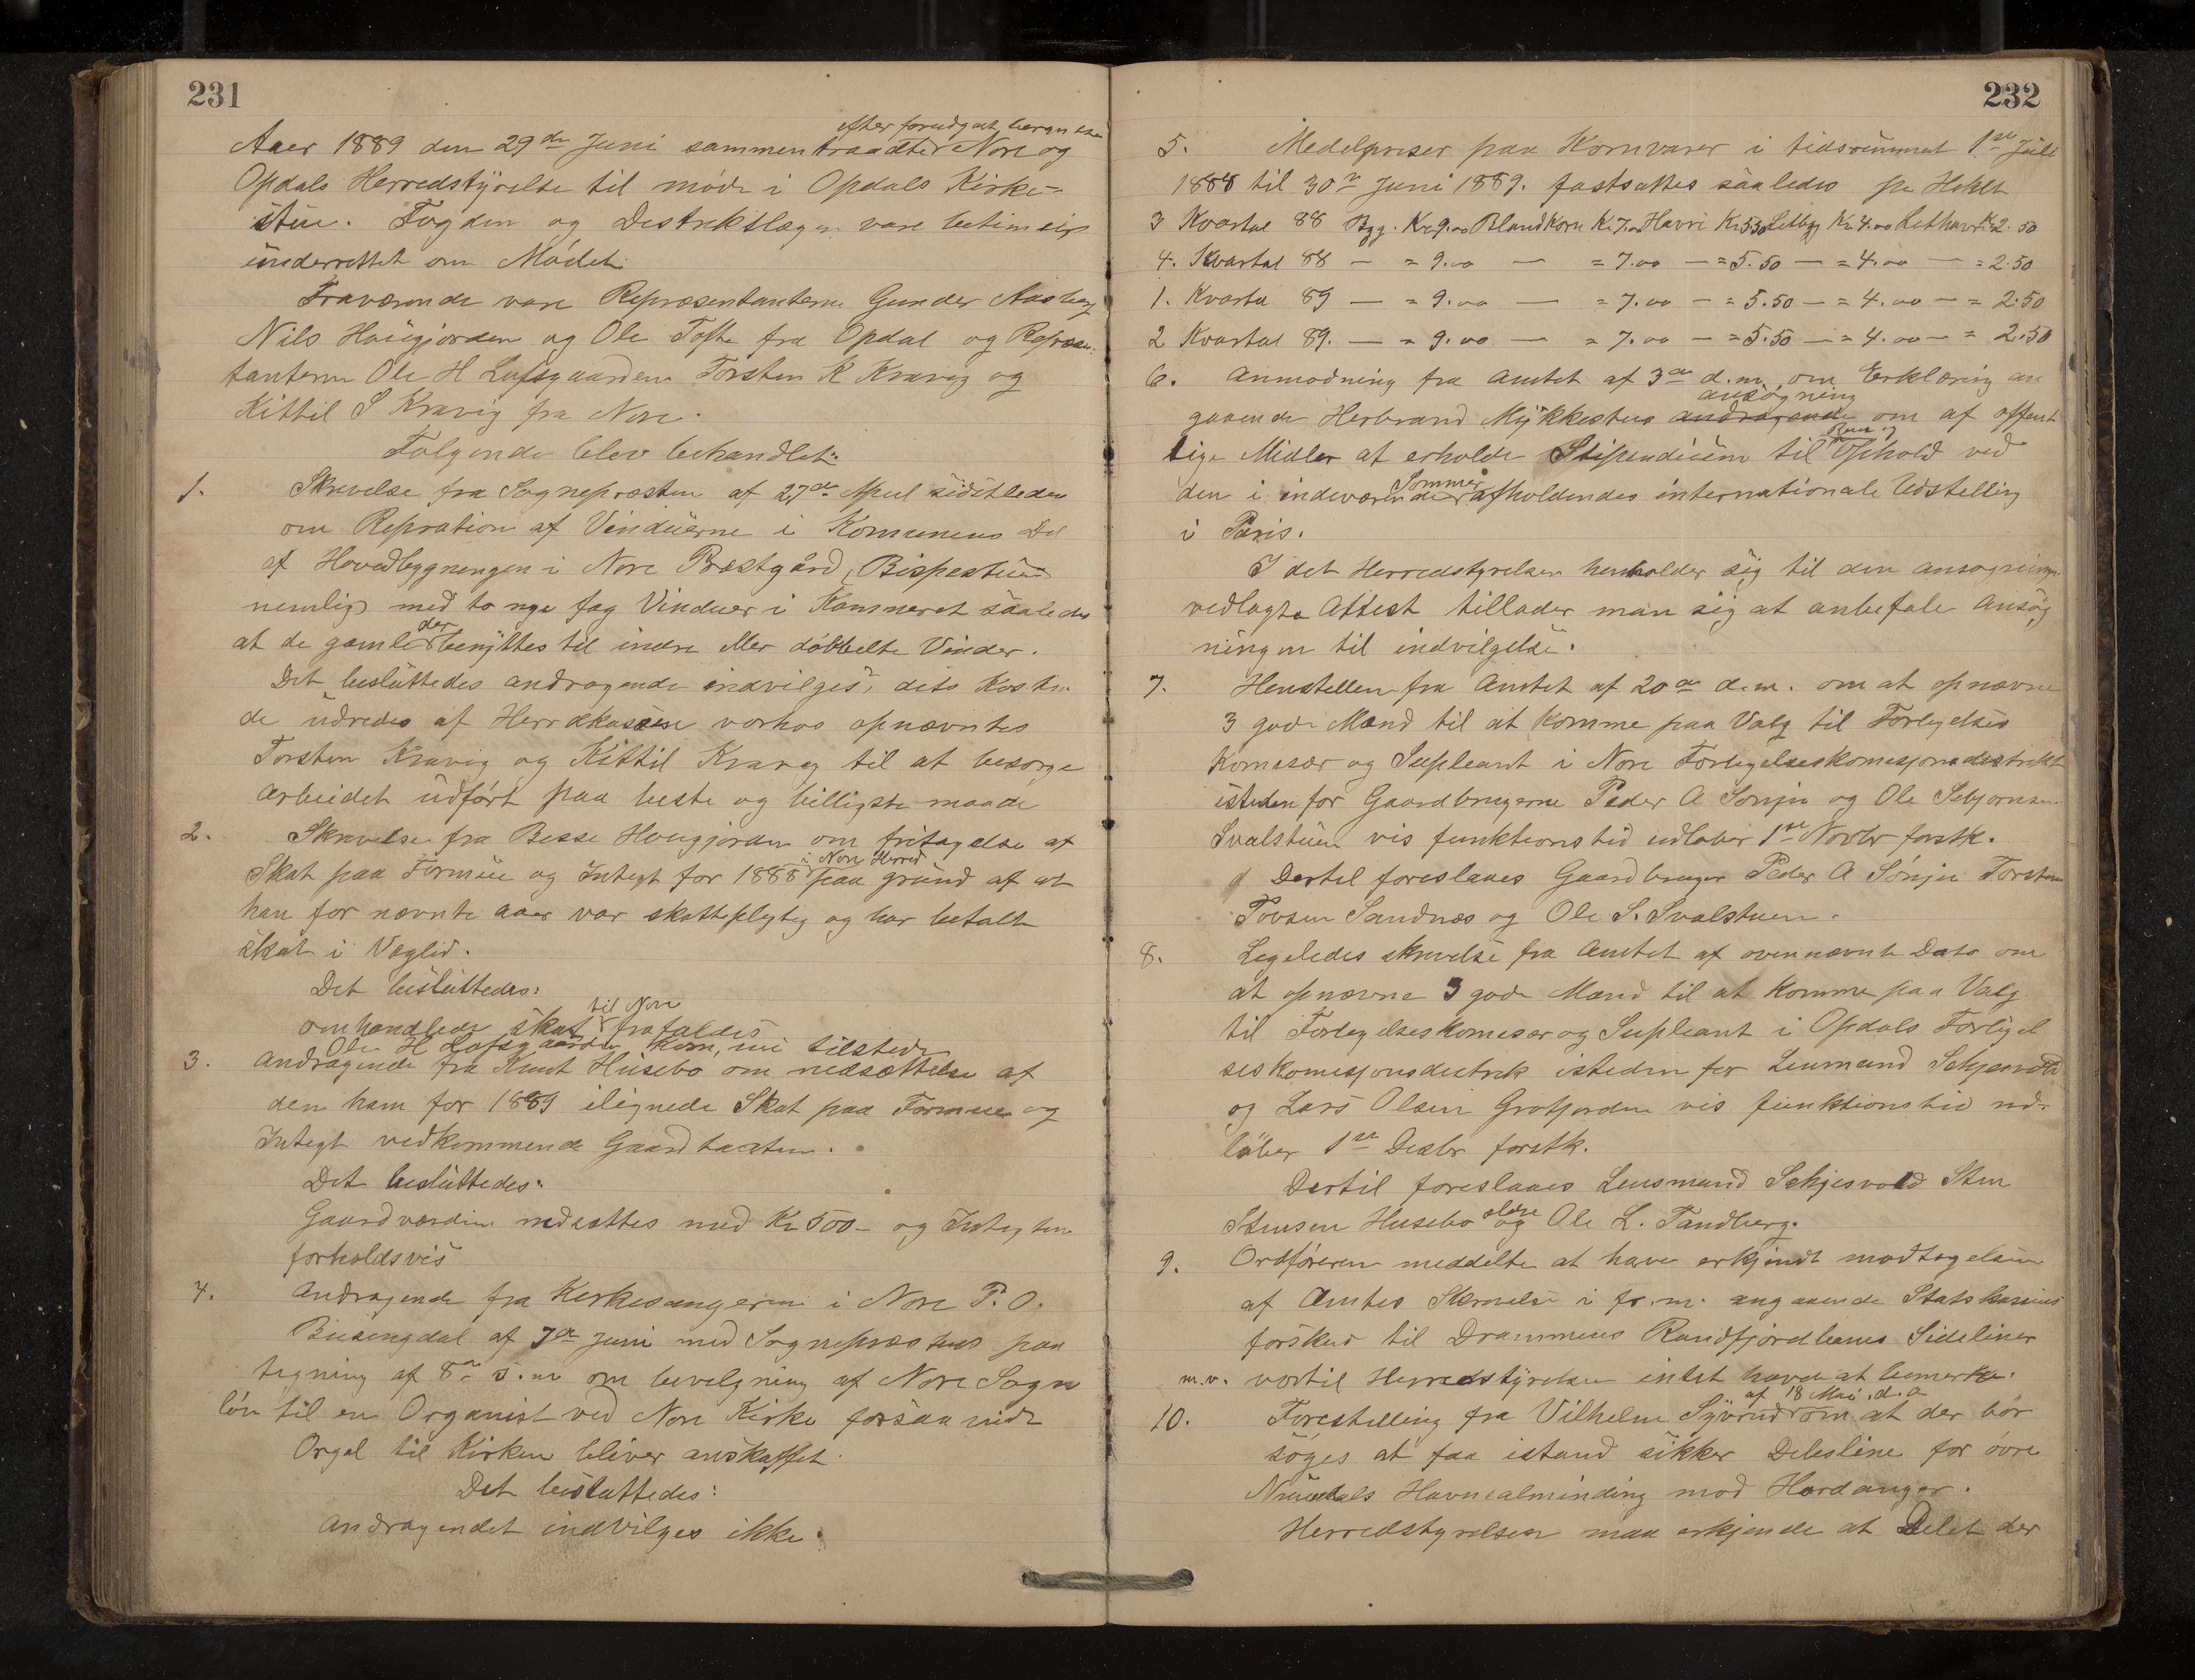 231
efter forudgaat
Aaer 1889 den 29de Juni sammentraadte Nore og
Opdals Herredstyrelse til møde i Opdals Kirke=
stue. Fogden og Destriktslægen vare betimelig
underrettet om Mødet.
Fraværende vare Repræsentanterne Gunder Aasberg
Nils Hougjorden og Ole Tofte fra Opdal og Repræsen-
tanterne Ole H Lufsgaarden Torsten K Kravig og
Kittil S Kravig fra Nore.
Følgende blev behandlet:
1. Skrivelse fra Sognepræsten af 27de April sidstleden
om Repration af Vinduerne i Komunens Del
af Hovedbygningen i Nore Præstgård, Bispestuen
nemlig med to nye fag Vinduer i Kammeret saaledes
at de gamle der benyttes til indre eller dobbelte Vinder.
Det besluttedes andragende indvilges, dets Kosten-
de udredes af Herredkassen vorhos opnævntes
Torsten Kravig og Kittil Kravig til at besørge
arbeidet udført paa beste og billigste maade
2. Skrivelse fra Besse Hougjorden om fritagelse af
Skat paa Formue og Integt for 1888 i Nore Herred paa grund af at
han for nævnte aaer var skatteplegtig og har betalt
skat i Veglid.
Det besluttedes:
omhandlede skat til Nore frafaldes
Ole H Lofsgaarden kom nu tilstede
3. andragende fra Knut Husebø om nedsættelse af
den ham for 1889 ilignede Skat paa Formue og
Integt vedkommende Gaardtaxten.
Det besluttedes:
Gaardværdien nedsættes med Kr 500- og Integten
forholdsvis
4. Andragende fra Kerkesangeren i Nore P. O.
Busengdal af 7de Juni med Sognepræstens paa
tegning af 8de s.m om bevelgning af Nore Sogn
løn til en Organist ved Nore Kirke forsaavidt
Orgel til Kirken bliver anskaffet.
Det besluttedes:
andragendet indvilges ikke.
232
5. Medelpriser paa Kornvarer i tidsrummet 1ste Juli
1888 til 30te Juni 1889. fastsattes saaledes pr Hektl
3 Kvartal 88 Byg. Kr 9.00 Blandkorn Kr 7.00 Havre Kr 5.50 Letbyg Kr 4.00 Lethavre Kr 2.50
4. Kvartal 88 — = 9.00 — = 7.00 — = 5.50 — = 4.00 — = 2.50
1. Kvartal 89 — = 9.00 — = 7.00 — = 5.50 — = 4.00 — = 2.50
2 Kvartal 89. — = 9.00 — = 7.00 — = 5.50 — = 4.00 — = 2.50
6. Anmodning fra Amtet af 3de d.m. om Erklæring an
gaaende Herbrand Mykkestues andragende ansøgning om af offent
lige Midler at erholde Stipendium til Reise og Ophold ved
den i indeværende Sommer afholdendes internationale Udstelling
i Paris.
I det Herredstyrelsen henholder sig til den ansøgningen
vedlagte Attest tillader man sig at anbefale Ansøg
ningen til indvilgelse.
7. Henstellen fra Amtet af 20de d.m. om at opnævne
3 gode Mænd til at komme paa Valg til Forlegelses
komesær og Supleant i Nore Forlegelseskomesjonsdestrikt
istedenfor Gaardbrugerne Peder A Sønju og Ole Sebjørnsen
Svalstuen vis funktionstid udløber 1ste Novbr førstk.
Dertel foreslaaes Gaardbruger Peder A Sønju Torsten
Tovsen Sandnæs og Ole S. Svalstuen.
8. Legeledes skrivelse fra Amtet af ovennævnte Dato om
at opnævne 3 gode Mænd til at komme paa Valg
til Forlegelseskomesær og Supleant i Opdals Forligel
seskomesjonsdestrik isteden for Lensmand Schjesvold
og Lars Olsen Grotjorden vis funktionstid ud-
løber 1ste Decbr førstk.
Dertil foreslaaes Lensmand Schjesvold Sten
Stensen Husebø eldre og Ole L. Tandberg.
9. Ordføreren meddelte at have erkjendt modtagelsen
af Amtes Skrivelse i fr.m. angaaende Statskassens
forskud til Drammens Randfjordbanes Sidelinier
m.v. vortil Herredstyrelsen intet havde at bemerke.
10. Forestelling fra Vilhelm Syvrud af 18 Mai d.a om at der bør
søges at faa istand sikker Delesline for øvre
Numedals Havnealminding mod Hardanger.
Herredstyrelsen maa erkjende at Delet der